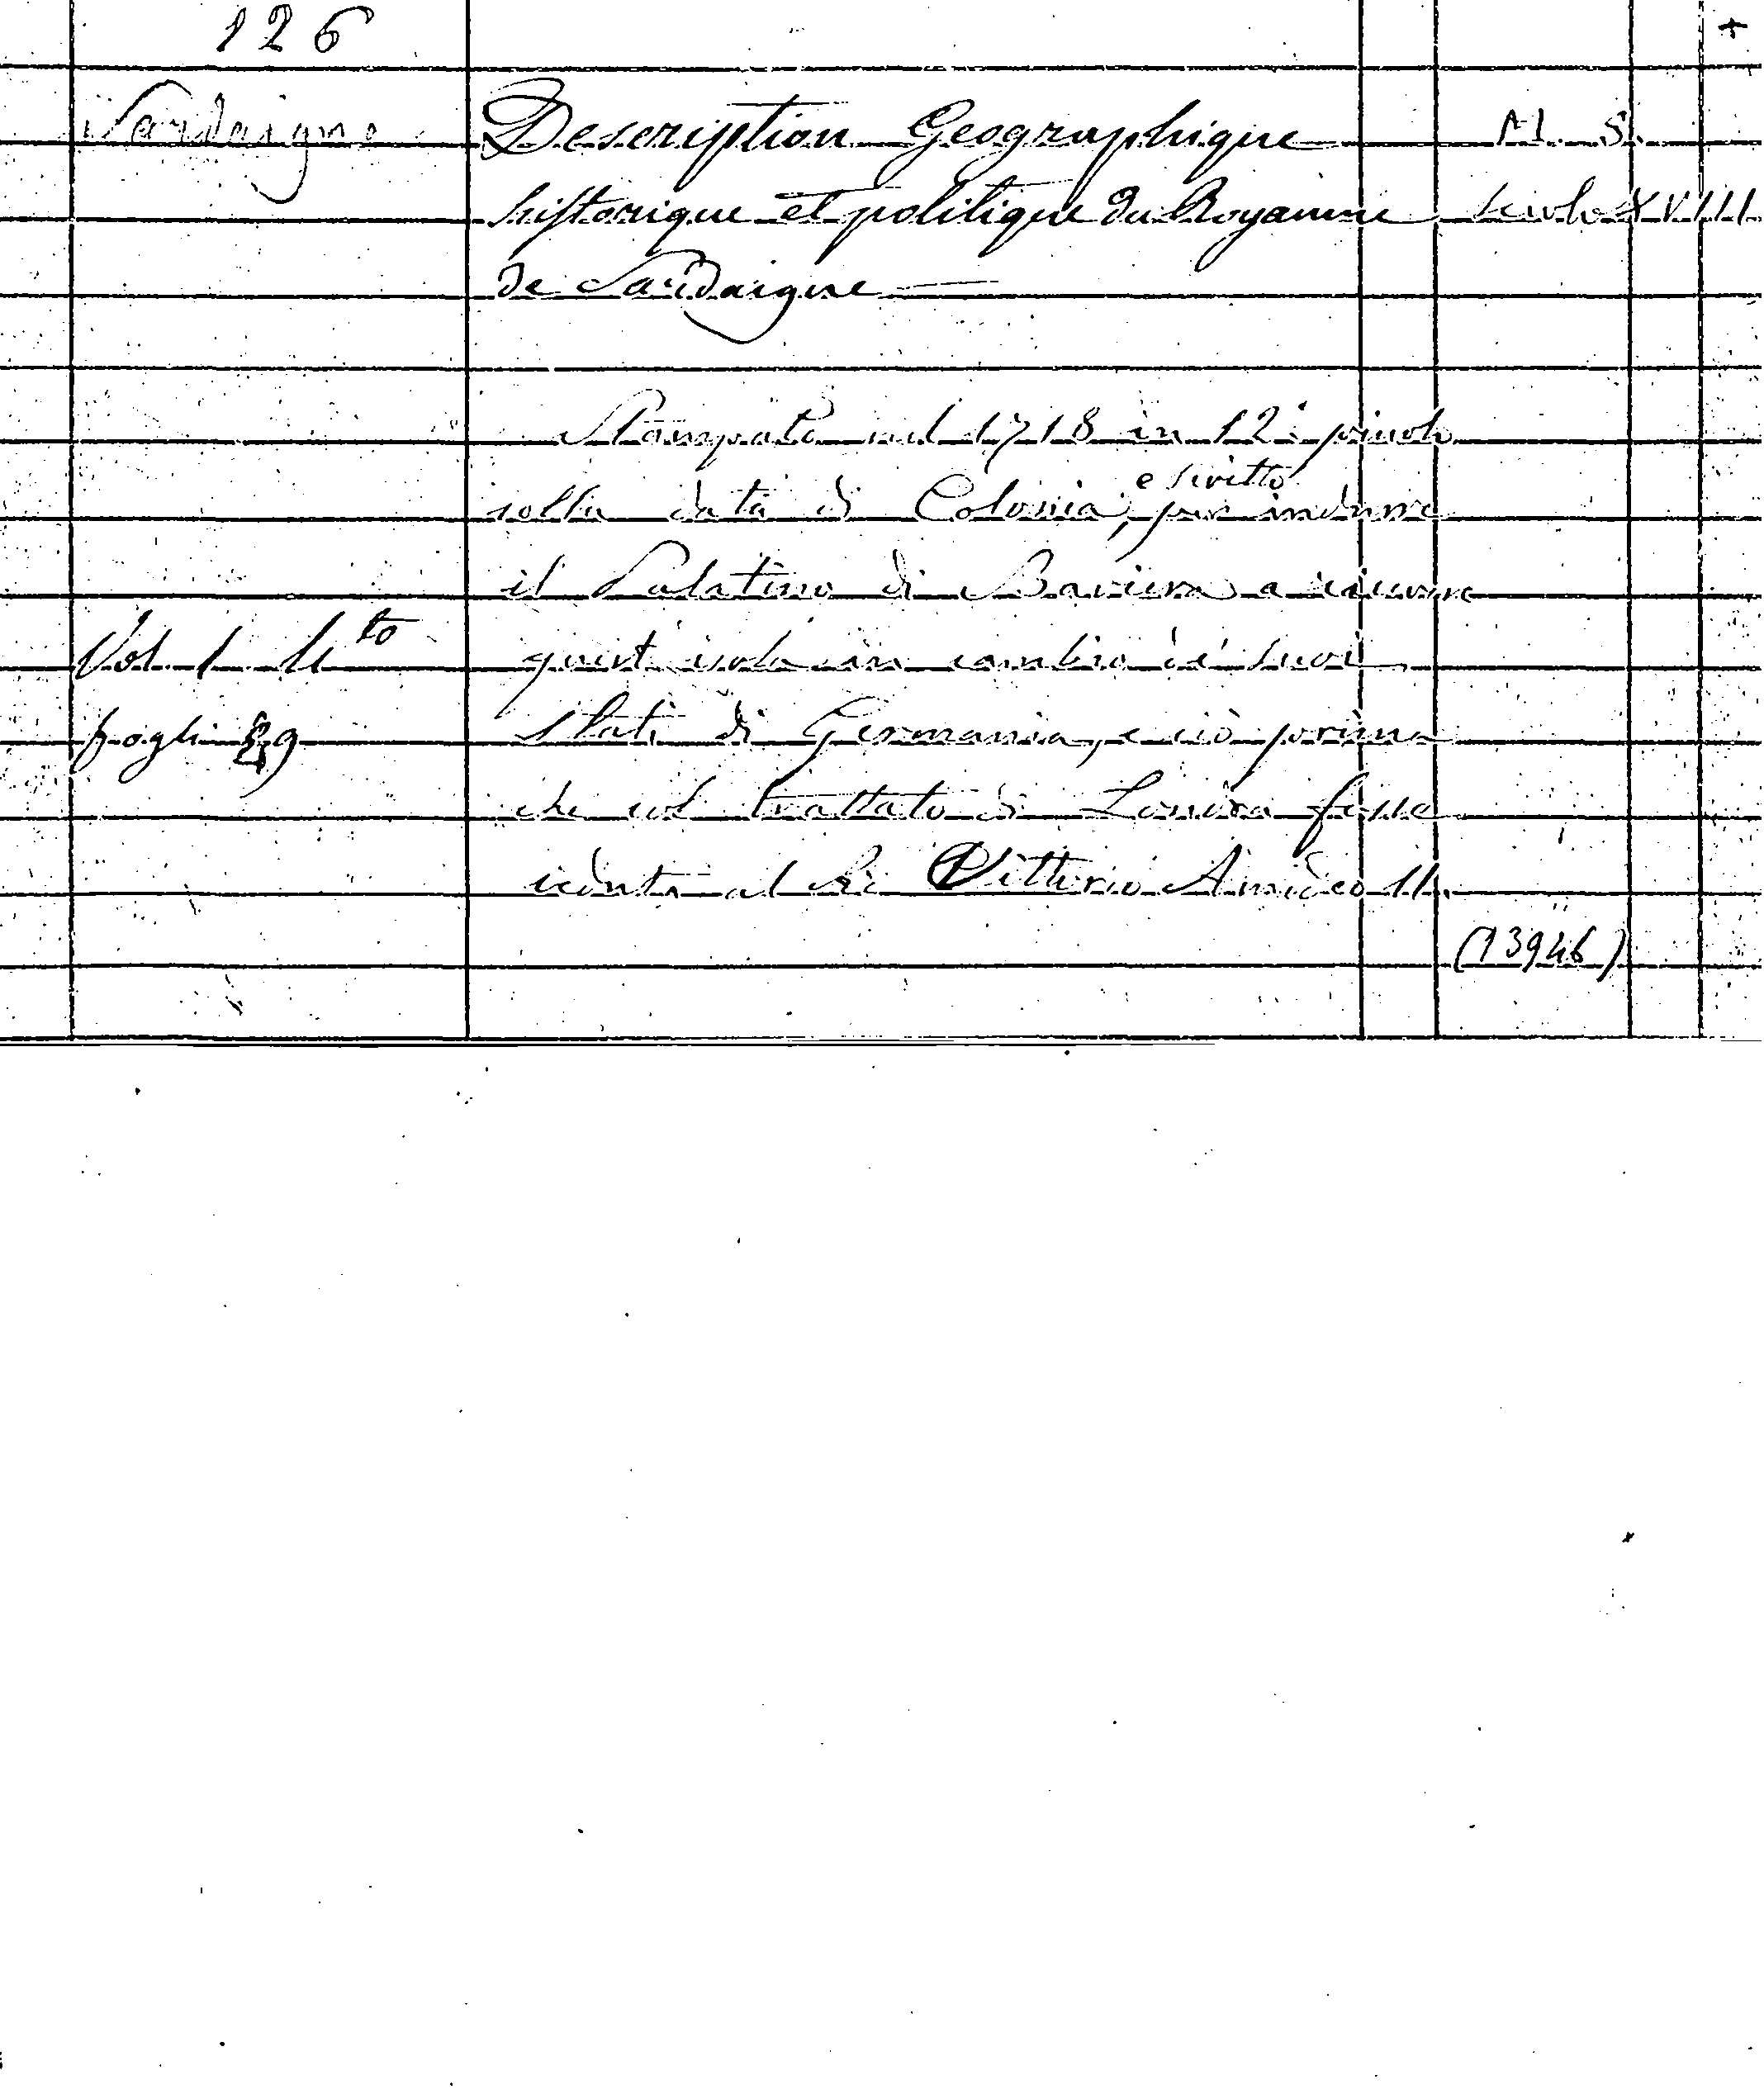 126 +
Sardaigne Description Geographique M. S.
historique et politique du Royaume secolo XVIII
de Sardaigne
Stampata nel 1718 in 12° piccolo
e scritto
colla data di Colonia, per indurre
il Palatino di Baviera a ricevere
Vol. 1 4to quest'isola in cambio de' suoi
fogli 29 Stati di Germania, e ciò prima
che col trattato di Londra fosse
ceduta al Re Vittorio Amedeo II.
(13946)